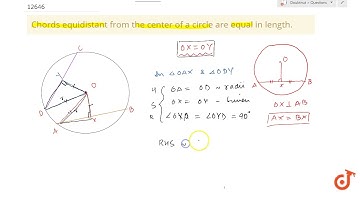 12646
Chords equidistant from the center of a circle are equal in length.
OX = OY
In △OAX & △ODY
OA = OD - radii
OX = OY - given
∠OXA = ∠OYD = 90°
RHS
OX ⊥ AB
AX = BX
C
Y
O
D
A
X
B
O
A
X
B
doubtnut